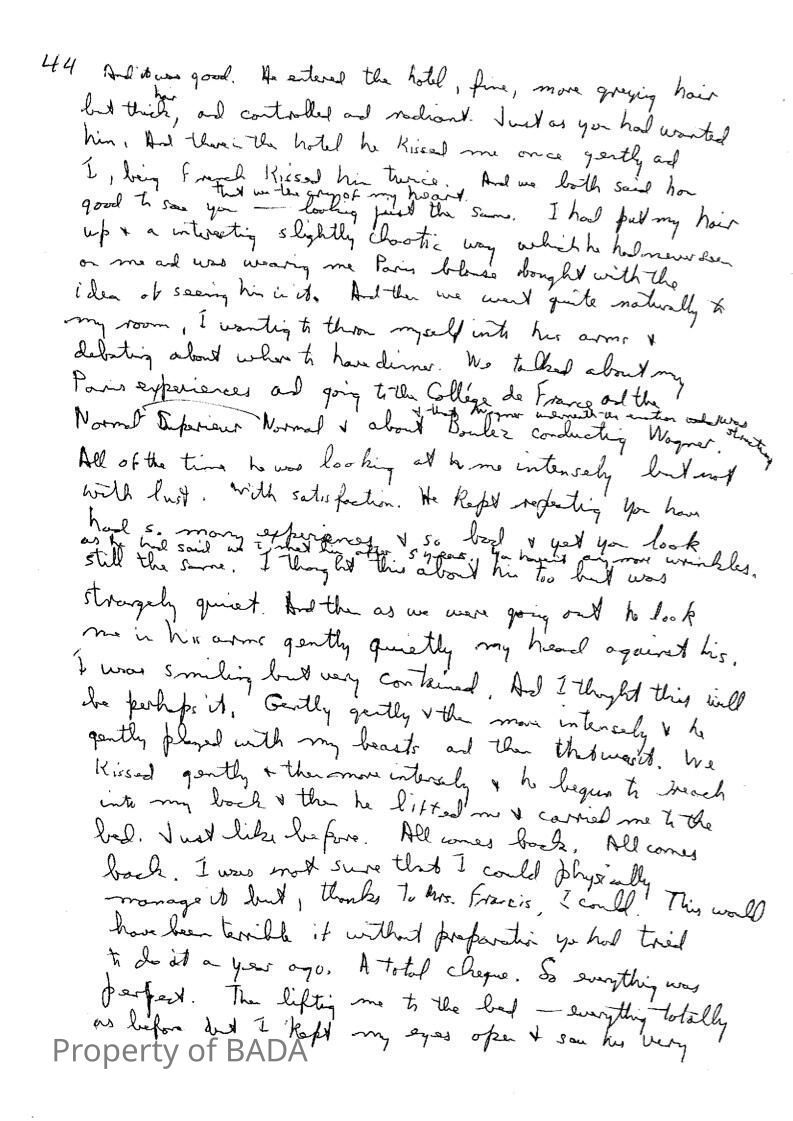 44
And it was good. He entered the hotel, fine, more greying hair
but thick hair, and controlled and radiant. Just as you had wanted
him. And there in the hotel he kissed me once gently ad
I, being French kissed him twice. And we both said how
that was the cry of my heart.
good to see you — looking just the same. I had put my hair
up & a interesting slightly chaotic way which he had never seen
on me ad was wearing me Paris blouse bought with the
idea of seeing him in it. And then we went quite naturally to
my room, I wanting to throw myself into his arms &
debating about where to have dinner. We talked about my
Paris experiences and going to the Collége de France and the
Normal Superieur Normal & about Boulez conducting Wagner.
& that Wagner was structing
All of the time he was looking at me intensely but not
with lust. With satisfaction. He kept repeating you have
had so many experiences & so bad & yet you look
as he had said as I met him after 5 years. you haven't any more wrinkles.
still the same. I thought this about him too but was
strangely quiet. And then as we were going out he look
me in his arms gently quietly my head against his.
I was smiling but very contained. And I thought this will
be perhaps it. Gently gently & then more intensely & he
gently played with my beasts and then that was it. We
kissed gently & then more intensely & he begun to reach
into my back & then he lifted me & carried me to the
bed. Just like before. All comes back. All comes
back. I was not sure that I could physically
manage it but, thanks to Mrs. Francis, I could. This would
have been terrible if without preparation you had tried
to do it a year ago. A total cheque. So everything was
perfect. Then lifting me to the bed — everything totally
as before but I kept my eyes open & saw his very
Property of BADA